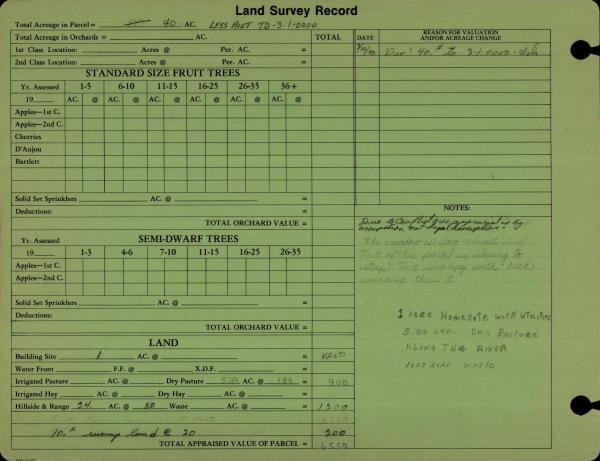 Land Survey Record
Total Acreage in Parcel = 40 AC. LESS PART TO -3-1-0000
Total Acreage in Orchards = AC. TOTAL
1st Class Location: Acres @ Per. AC. =
2nd Class Location: Acres @ Per. AC. =
DATE REASON FOR VALUATION AND/OR ACREAGE CHANGE
40. to 3-1-0000
STANDARD SIZE FRUIT TREES
Yr. Assessed 1-5 6-10 11-15 16-25 26-35 36+
19 AC. @ AC. @ AC. @ AC. @ AC. @ AC. @
Apples—1st C.
Apples—2nd C.
Cherries
D'Anjou
Bartlett
Solid Set Sprinklers AC. @ =
Deductions: =
TOTAL ORCHARD VALUE =
SEMI-DWARF TREES
Yr. Assessed 1-3 4-6 7-10 11-15 16-25 26-35
19 AC. @ AC. @ AC. @ AC. @ AC. @ AC. @
Apples—1st C.
Apples—2nd C.
Solid Set Sprinklers AC. @ =
Deductions:
TOTAL ORCHARD VALUE =
LAND
Building Site 1 AC. @ = 4250
Water Front F.F. @ X.D.F. =
Irrigated Pasture AC. @ Dry Pasture 5.00 AC. @ 180 = 900
Irrigated Hay AC. @ Dry Hay AC. @ =
Hillside & Range 24. AC. @ 50 Waste AC. @ = 1200
10. swamp land @ 20 200
TOTAL APPRAISED VALUE OF PARCEL = 6550
NOTES:
Part of this parcel is sloping to
Part swampy with creek
1 ACRE HOMESITE WITH UTILITIES
5.00 ACRE DRY PASTURE
ALONG THE RIVER
WASTE